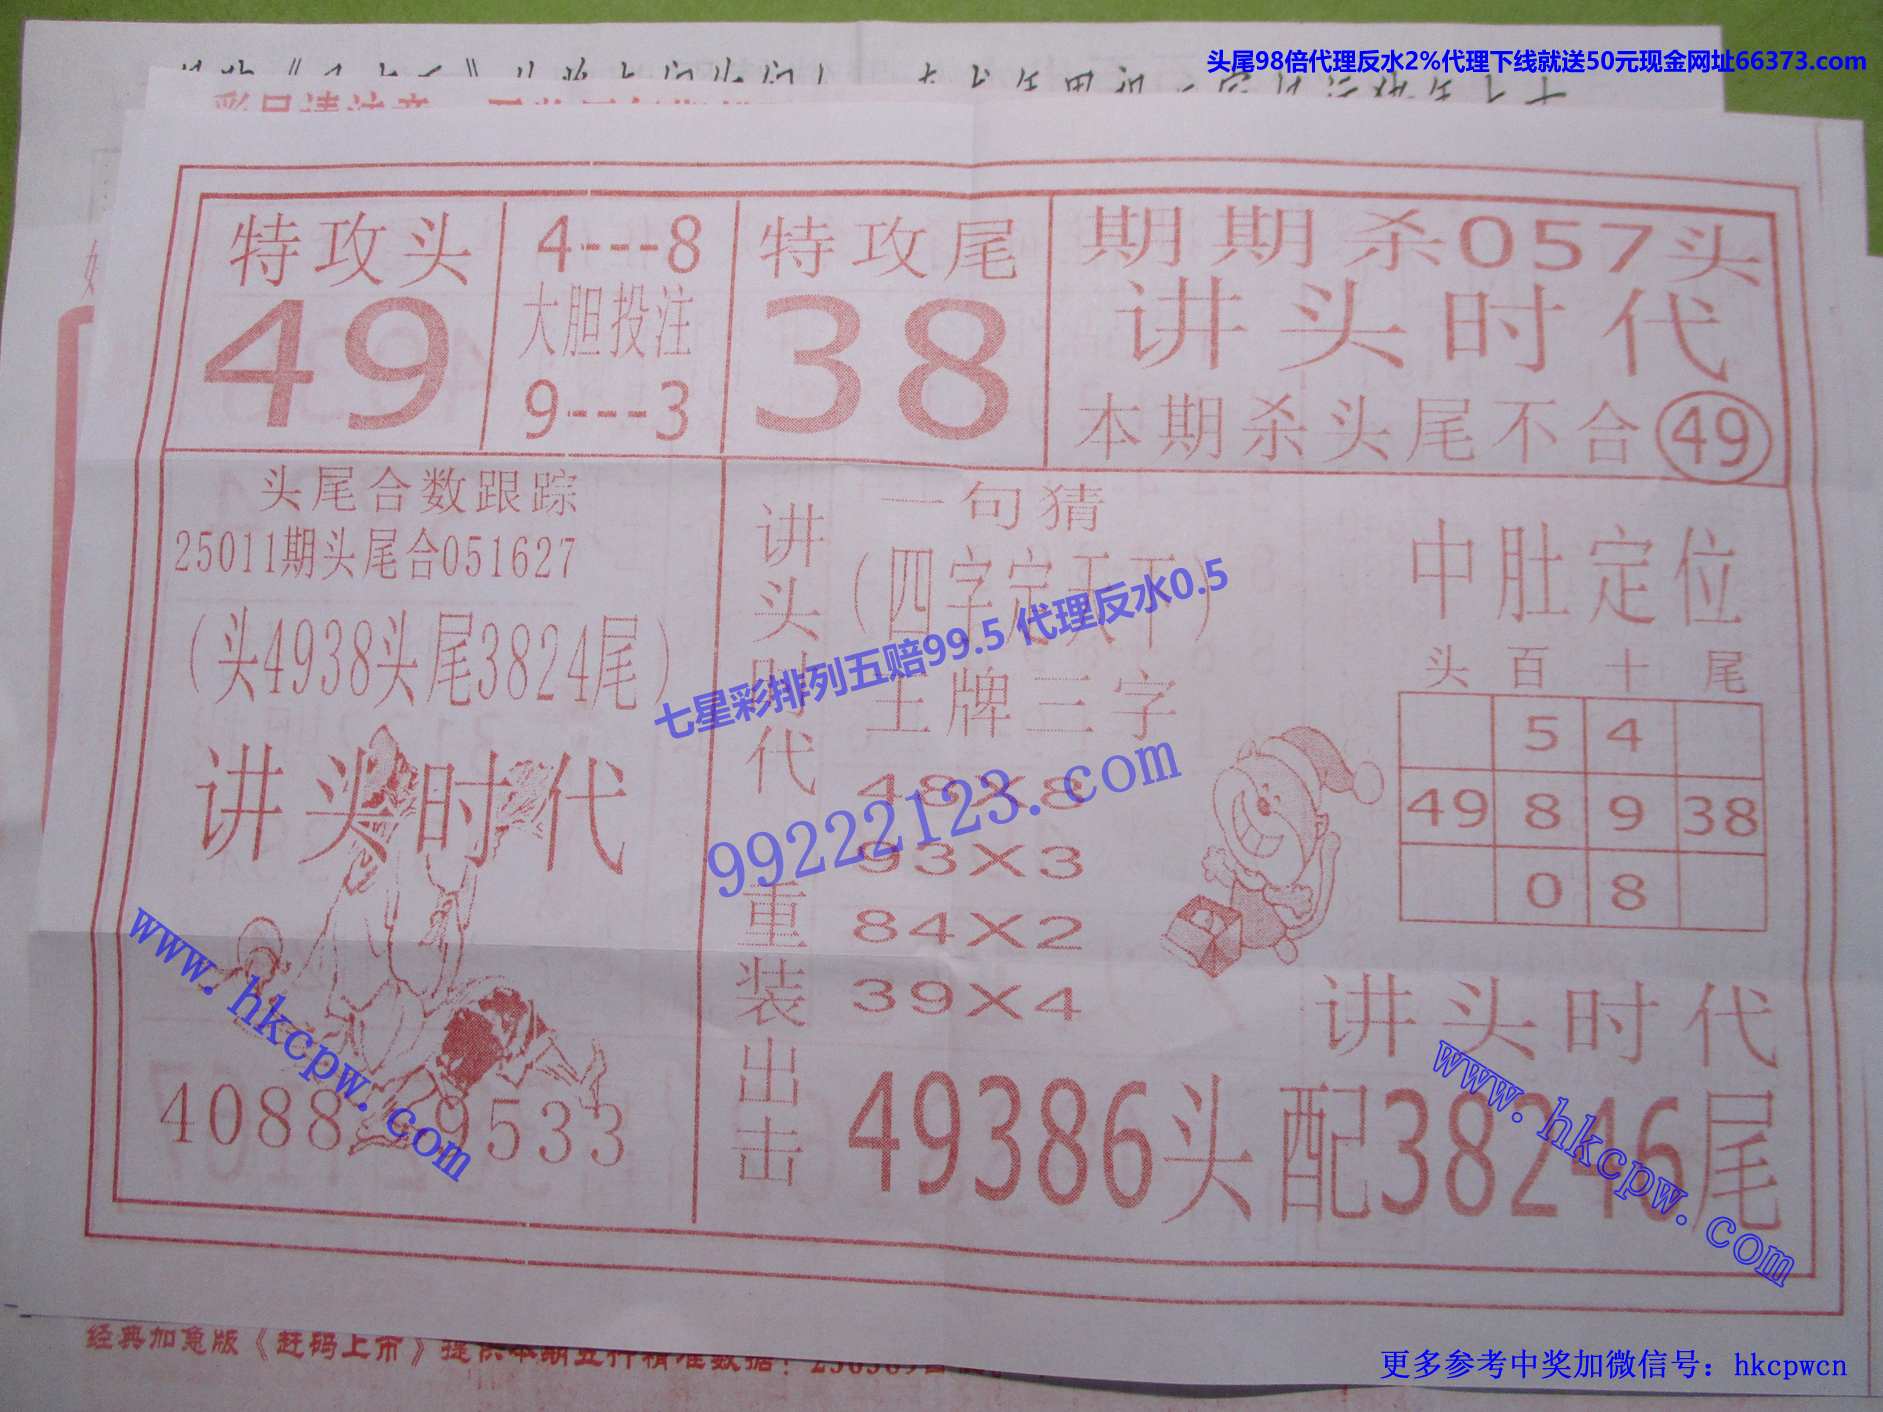 头尾98倍代理反水2%代理下线就送50元现金网址66373.com
特攻头
49
4---8
大胆投注
9---3
特攻尾
38
期期杀057头
讲头时代
本期杀头尾不合49
头尾合数跟踪
25011期头尾合051627
(头4938头尾3824尾)
讲头时代
讲头时代
重装出击
一句猜
(四字定天下)
王牌三字
48X8
93X3
84X2
39X4
中肚定位
头 百 十 尾
5 4
49 8 9 38
0 8
讲头时代
49386头配38246尾
七星彩排列五赔99.5 代理反水0.5
99222123.com
www.hkcpw.com
www.hkcpw.com
经典加急版《赶码上市》提供本期五件精准数据:
更多参考中奖加微信号：hkcpwcn